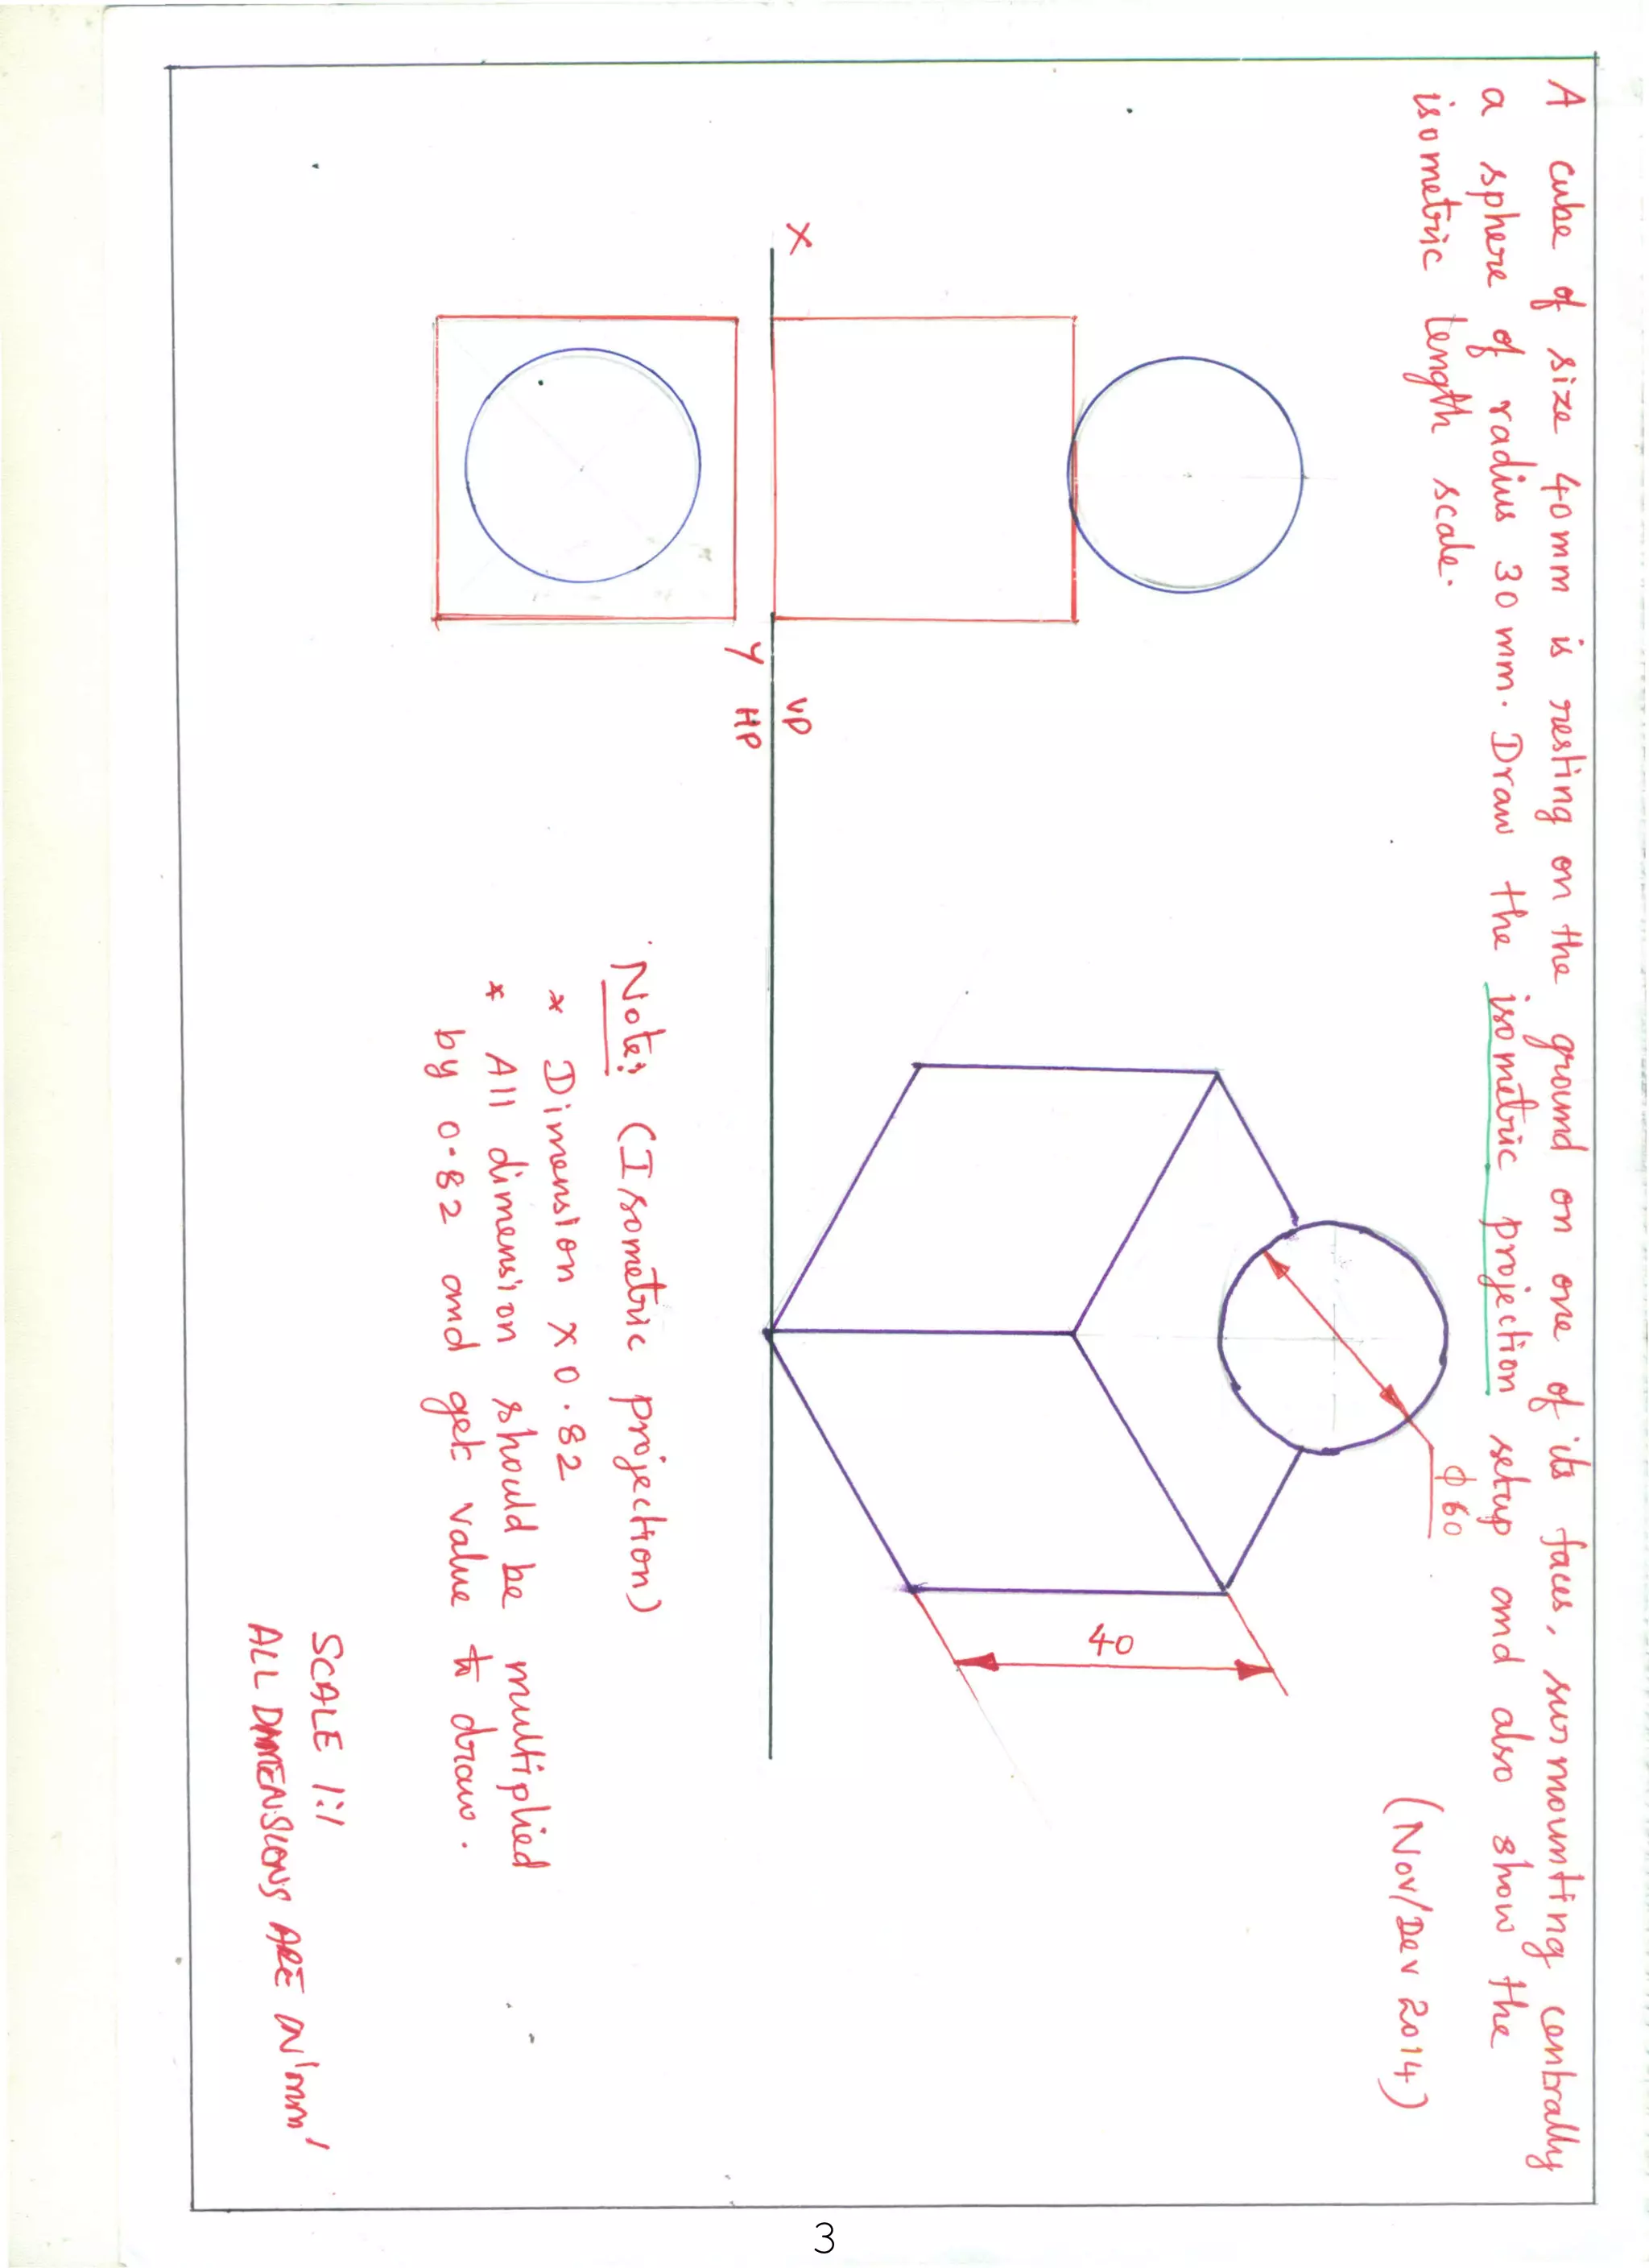 A cube of size 40mm is resting on the ground on one of its faces, surmounting centrally
a sphere of radius 30mm. Draw the isometric projection setup and also show the
isometric length scale.
(Nov/Dev 2014)
φ 60
40
X
Y
VP
HP
Note: (Isometric projection)
* Dimension x 0.82
* All dimension should be multiplied
by 0.82 and get value to draw.
SCALE 1:1
ALL DIMENSIONS ARE IN 'mm'
3